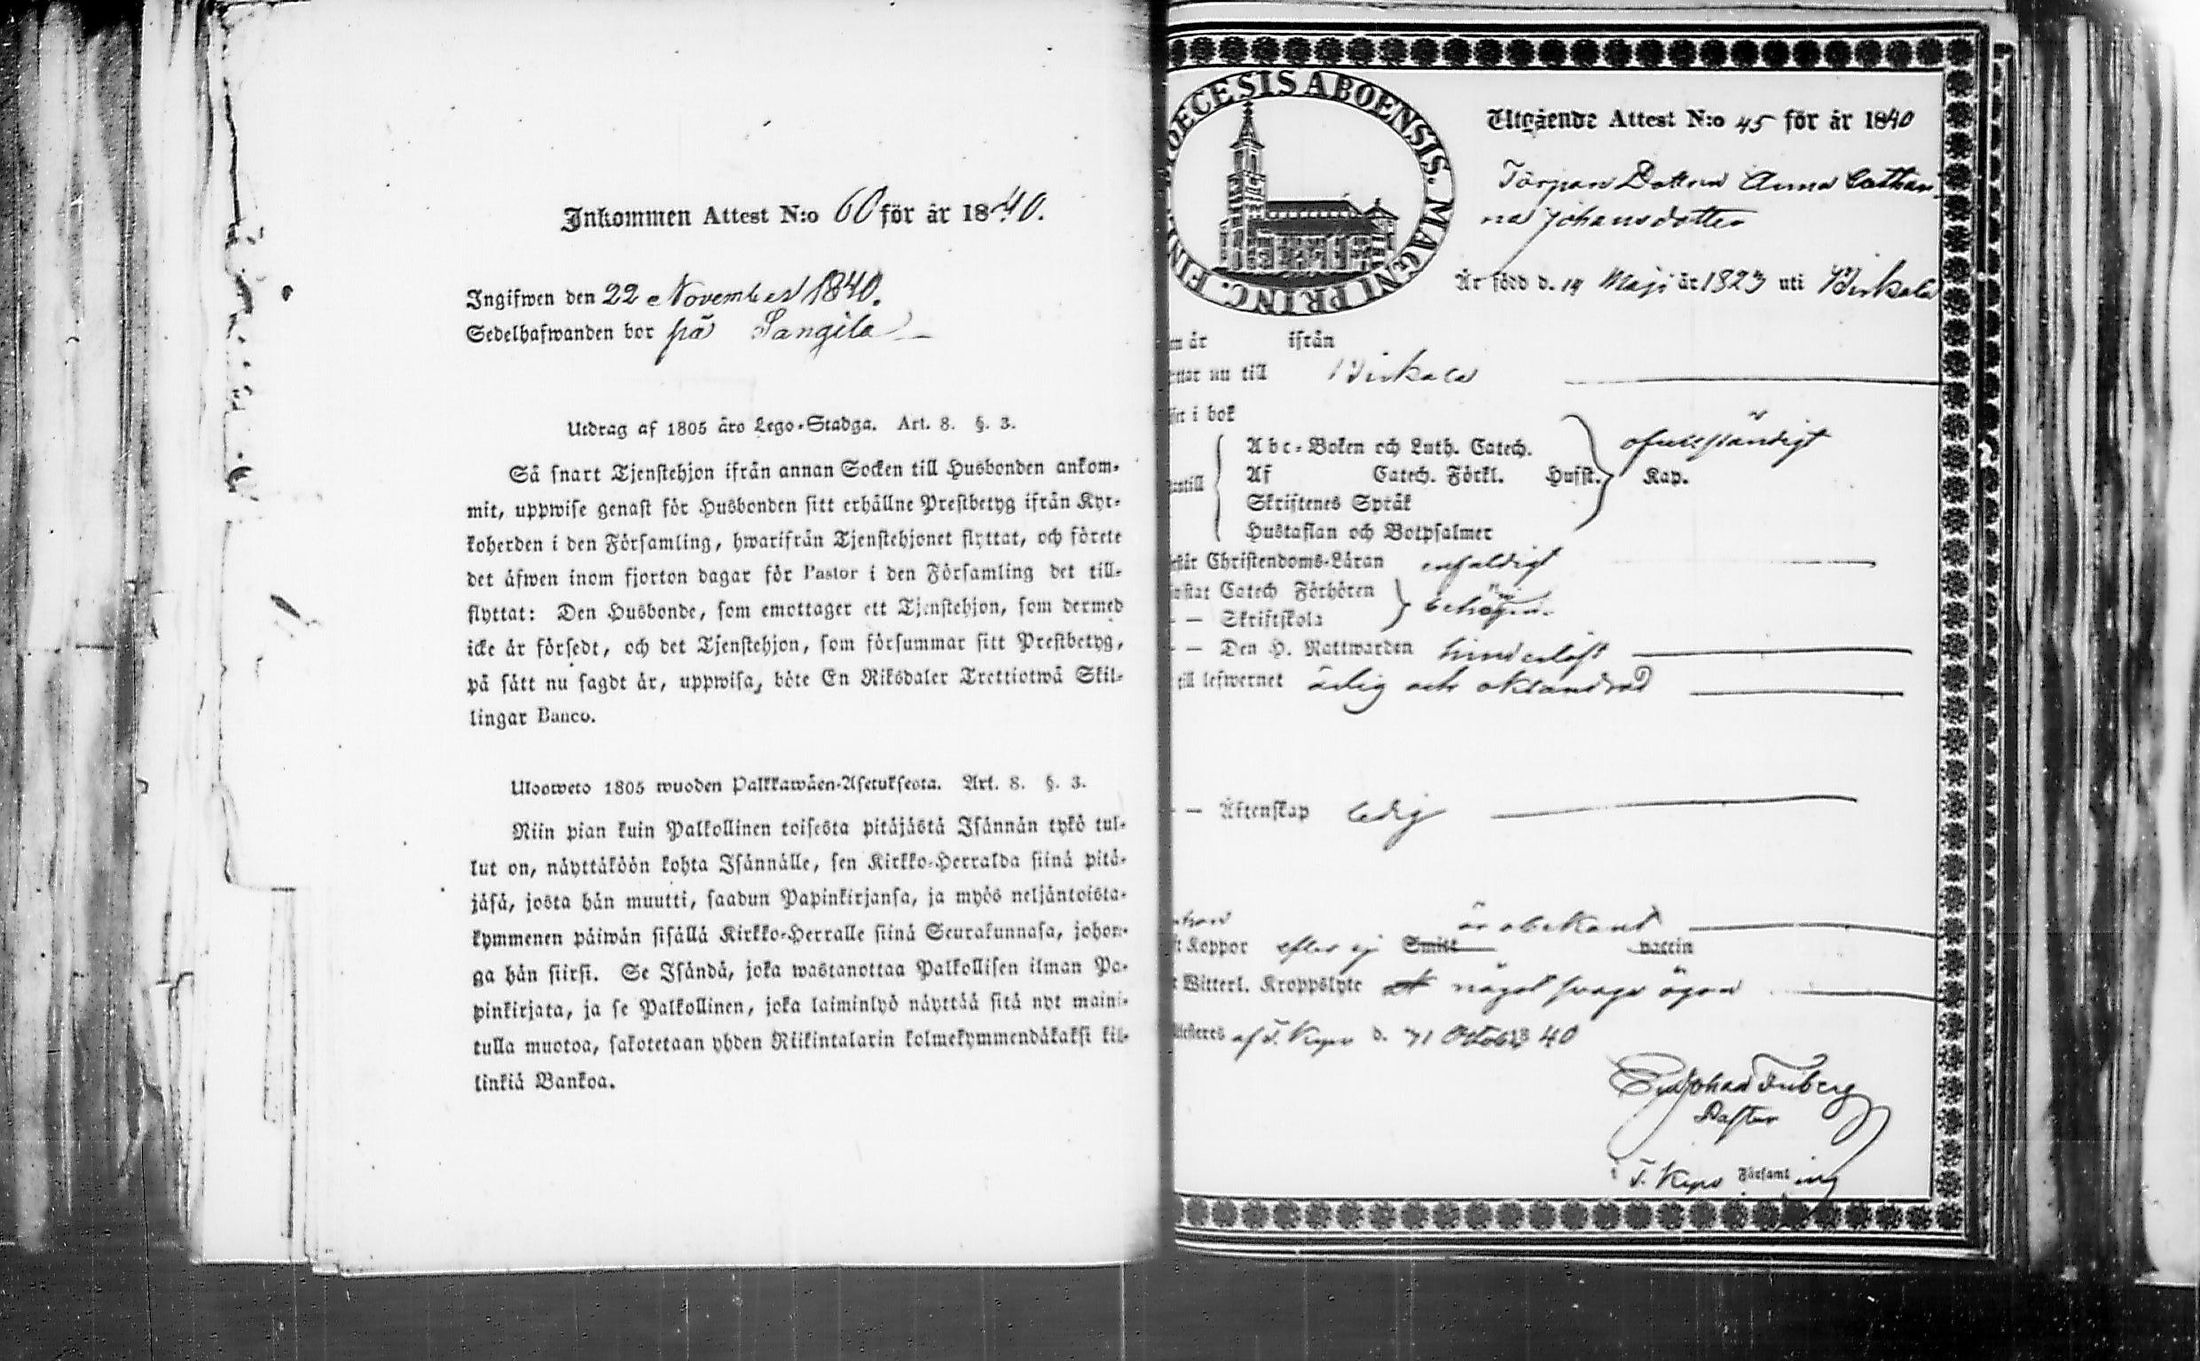 Inkommen Attest N:o 60 för år 1840.
Ingifwen den 22 November 1840.
Sedelhafwanden bor på Sangila
Utdrag af 1805 års Lego-Stadga. Art. 8. §. 3.
Så snart Tjenstehjon ifrån annan Socken till Husbonden ankom-
mit, uppwise genast för Husbonden sitt erhållne Prestbetyg ifrån Kyr-
koherden i den Församling, hwarifrån Tjenstehjonet flyttat, och förete
det äfwen inom fjorton dagar för Pastor i den Församling det till-
flyttat: Den Husbonde, som emottager ett Tjenstehjon, som dermed
icke är försedt, och det Tjenstehjon, som försummar sitt Prestbetyg,
på sätt nu sagdt är, uppwisa, böte En Riksdaler Trettiotwå Skil-
lingar Banco.
Ulosweto 1805 wuoden Palkkawäen-Asetuksesta. Art. 8. §. 3.
Niin pian kuin Palkollinen toisesta pitäjästä Isännän tykö tul-
lut on, näyttäköön kohta Isännälle, sen Kirkko-Herralda siinä pitä-
jäsä, josta hän muutti, saadun Papinkirjansa, ja myös neljäntoista-
kymmenen päiwän sisällä Kirkko-Herralle siinä Seurakunnasa, johon-
ga hän siirsi. Se Isändä, joka wastanottaa Palkollisen ilman Pa-
pinkirjata, ja se Palkollinen, joka laiminlyö näyttää sitä nyt maini-
tulla muotoa, sakotetaan yhden Riikintalarin kolmekymmendäkaksi kil-
linkiä Bankoa.
DIOECESIS ABOENSIS. MAGNI PRINC. FIN
Utgående Attest N:o 45 för år 1840
Dottren Anna Cathari
na Johansdotter
Är född d. 14 Maji år 1823 uti Birkala
år ifrån
nu till Birkala
i bok
Abc-Boken och Luth. Catech. ofullständigt
Af Catech. Förkl. Husst. Kap.
Skriftenes Språk
Hustaflan och Botpsalmer
Christendoms-Läran enfaldigt
Catech Förhören
— Skriftskola behörigen
— — Den H. Nattwarden hinderlöst
till lefwernet ärlig och oklandrad
— — Äktenskap ledig
är obekant
Koppor eller ej Smitt vaccin
Witterl. Kroppslyte något svaga ögon
af T. Kyro d. 31 October 40
Johan Tuberg
Pastor
i T. Kyro Församling